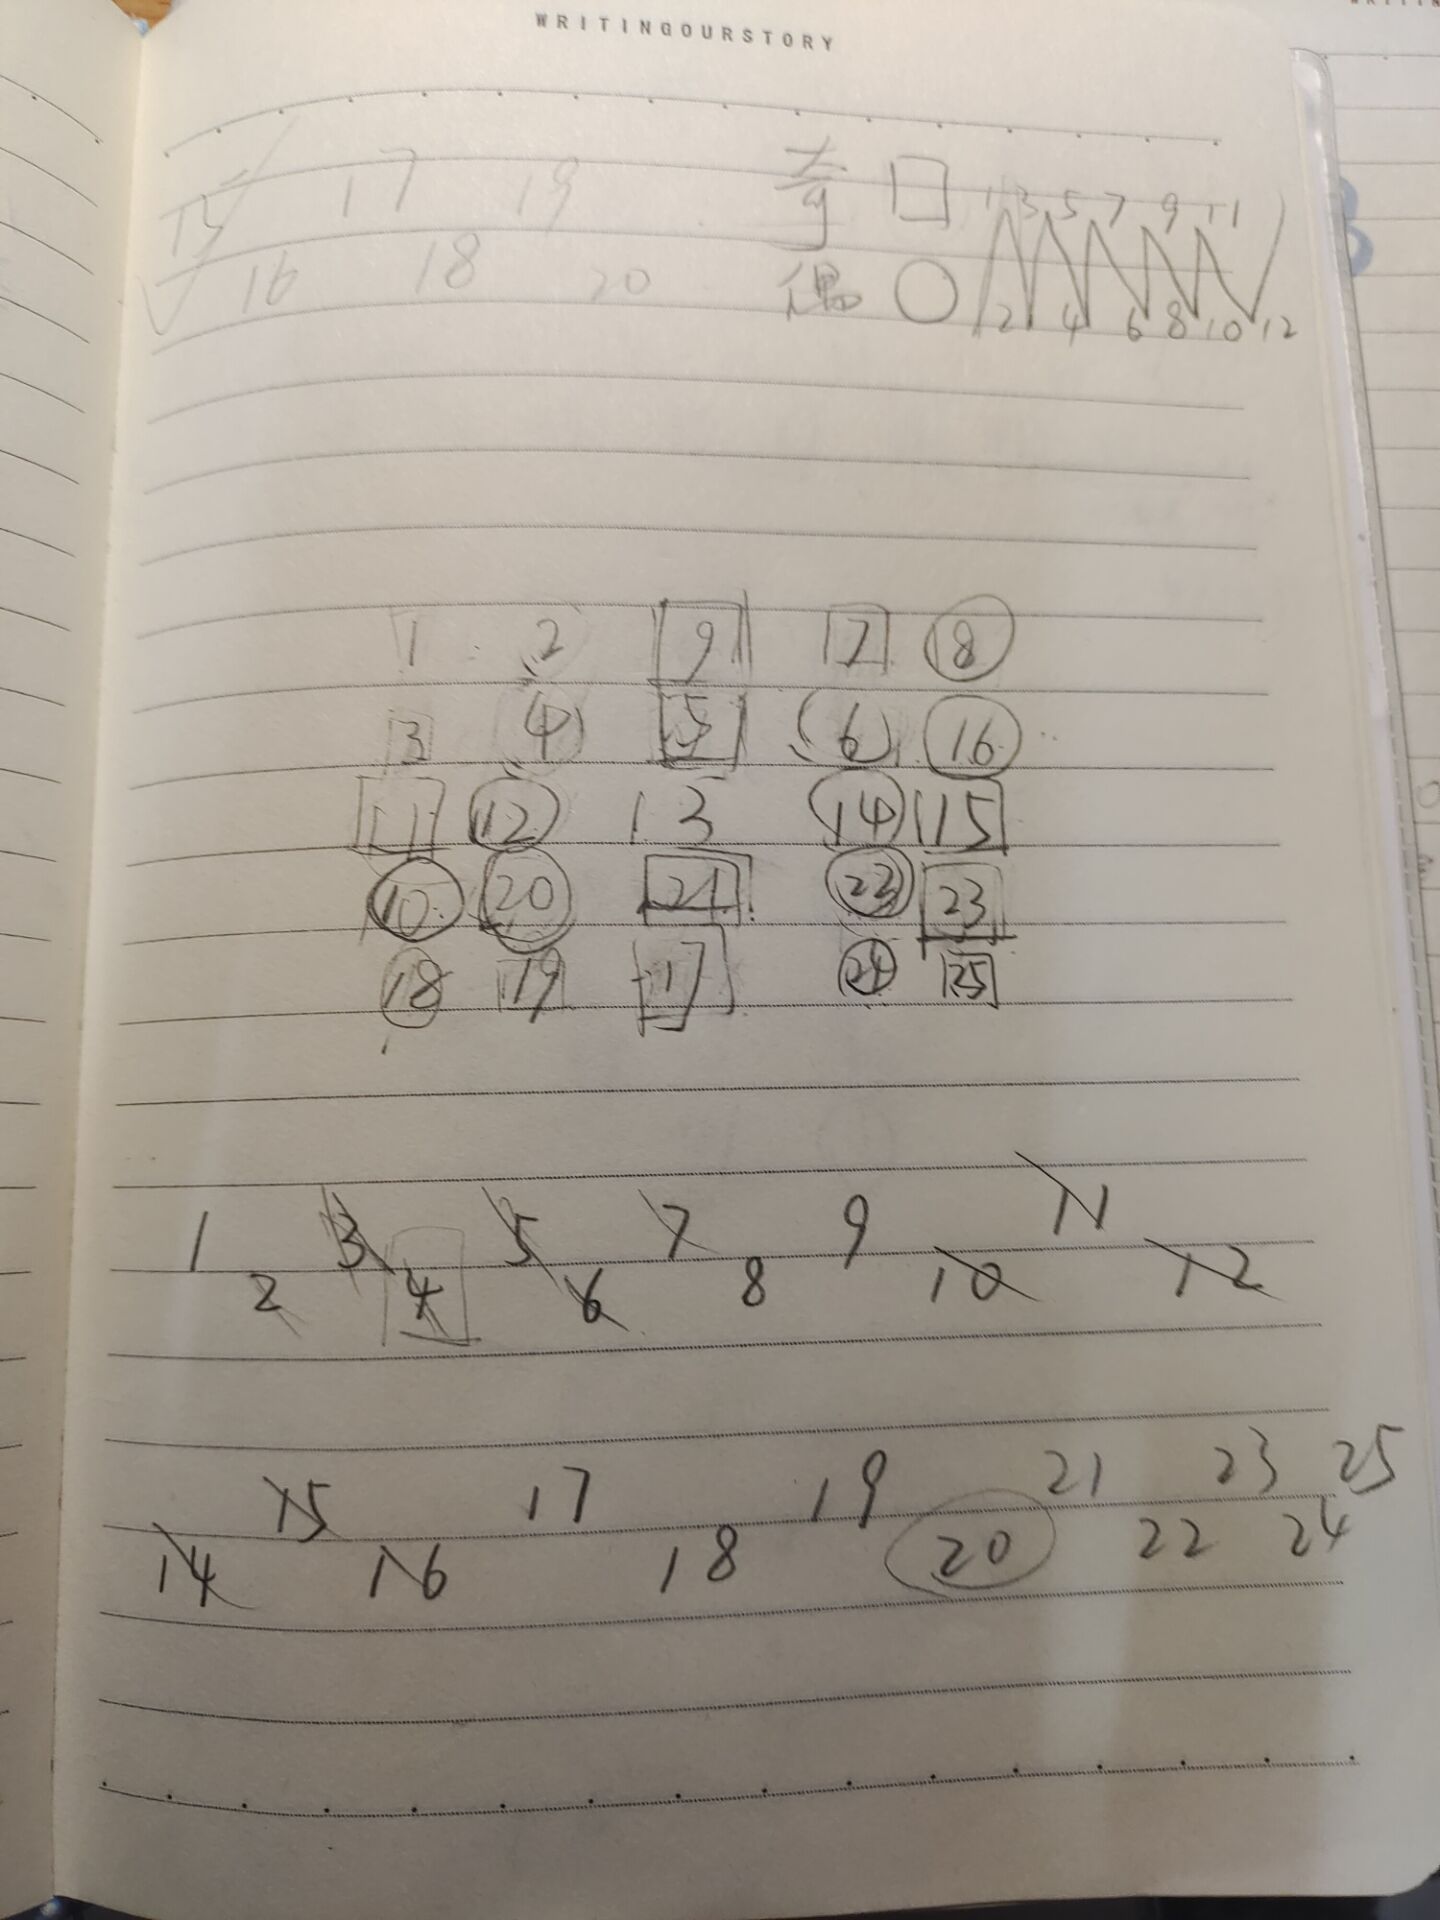 WRITINGOURSTORY
15 17 19 奇 1 3 5 7 9 11
16 18 20 偶 2 4 6 8 10 12
1 2 9 7 8
3 4 5 6 16
11 12 13 14 15
10 20 21 22 23
18 19 17 24 25
1 3 5 7 9 11
2 4 6 8 10 12
15 17 19 21 23 25
14 16 18 20 22 24